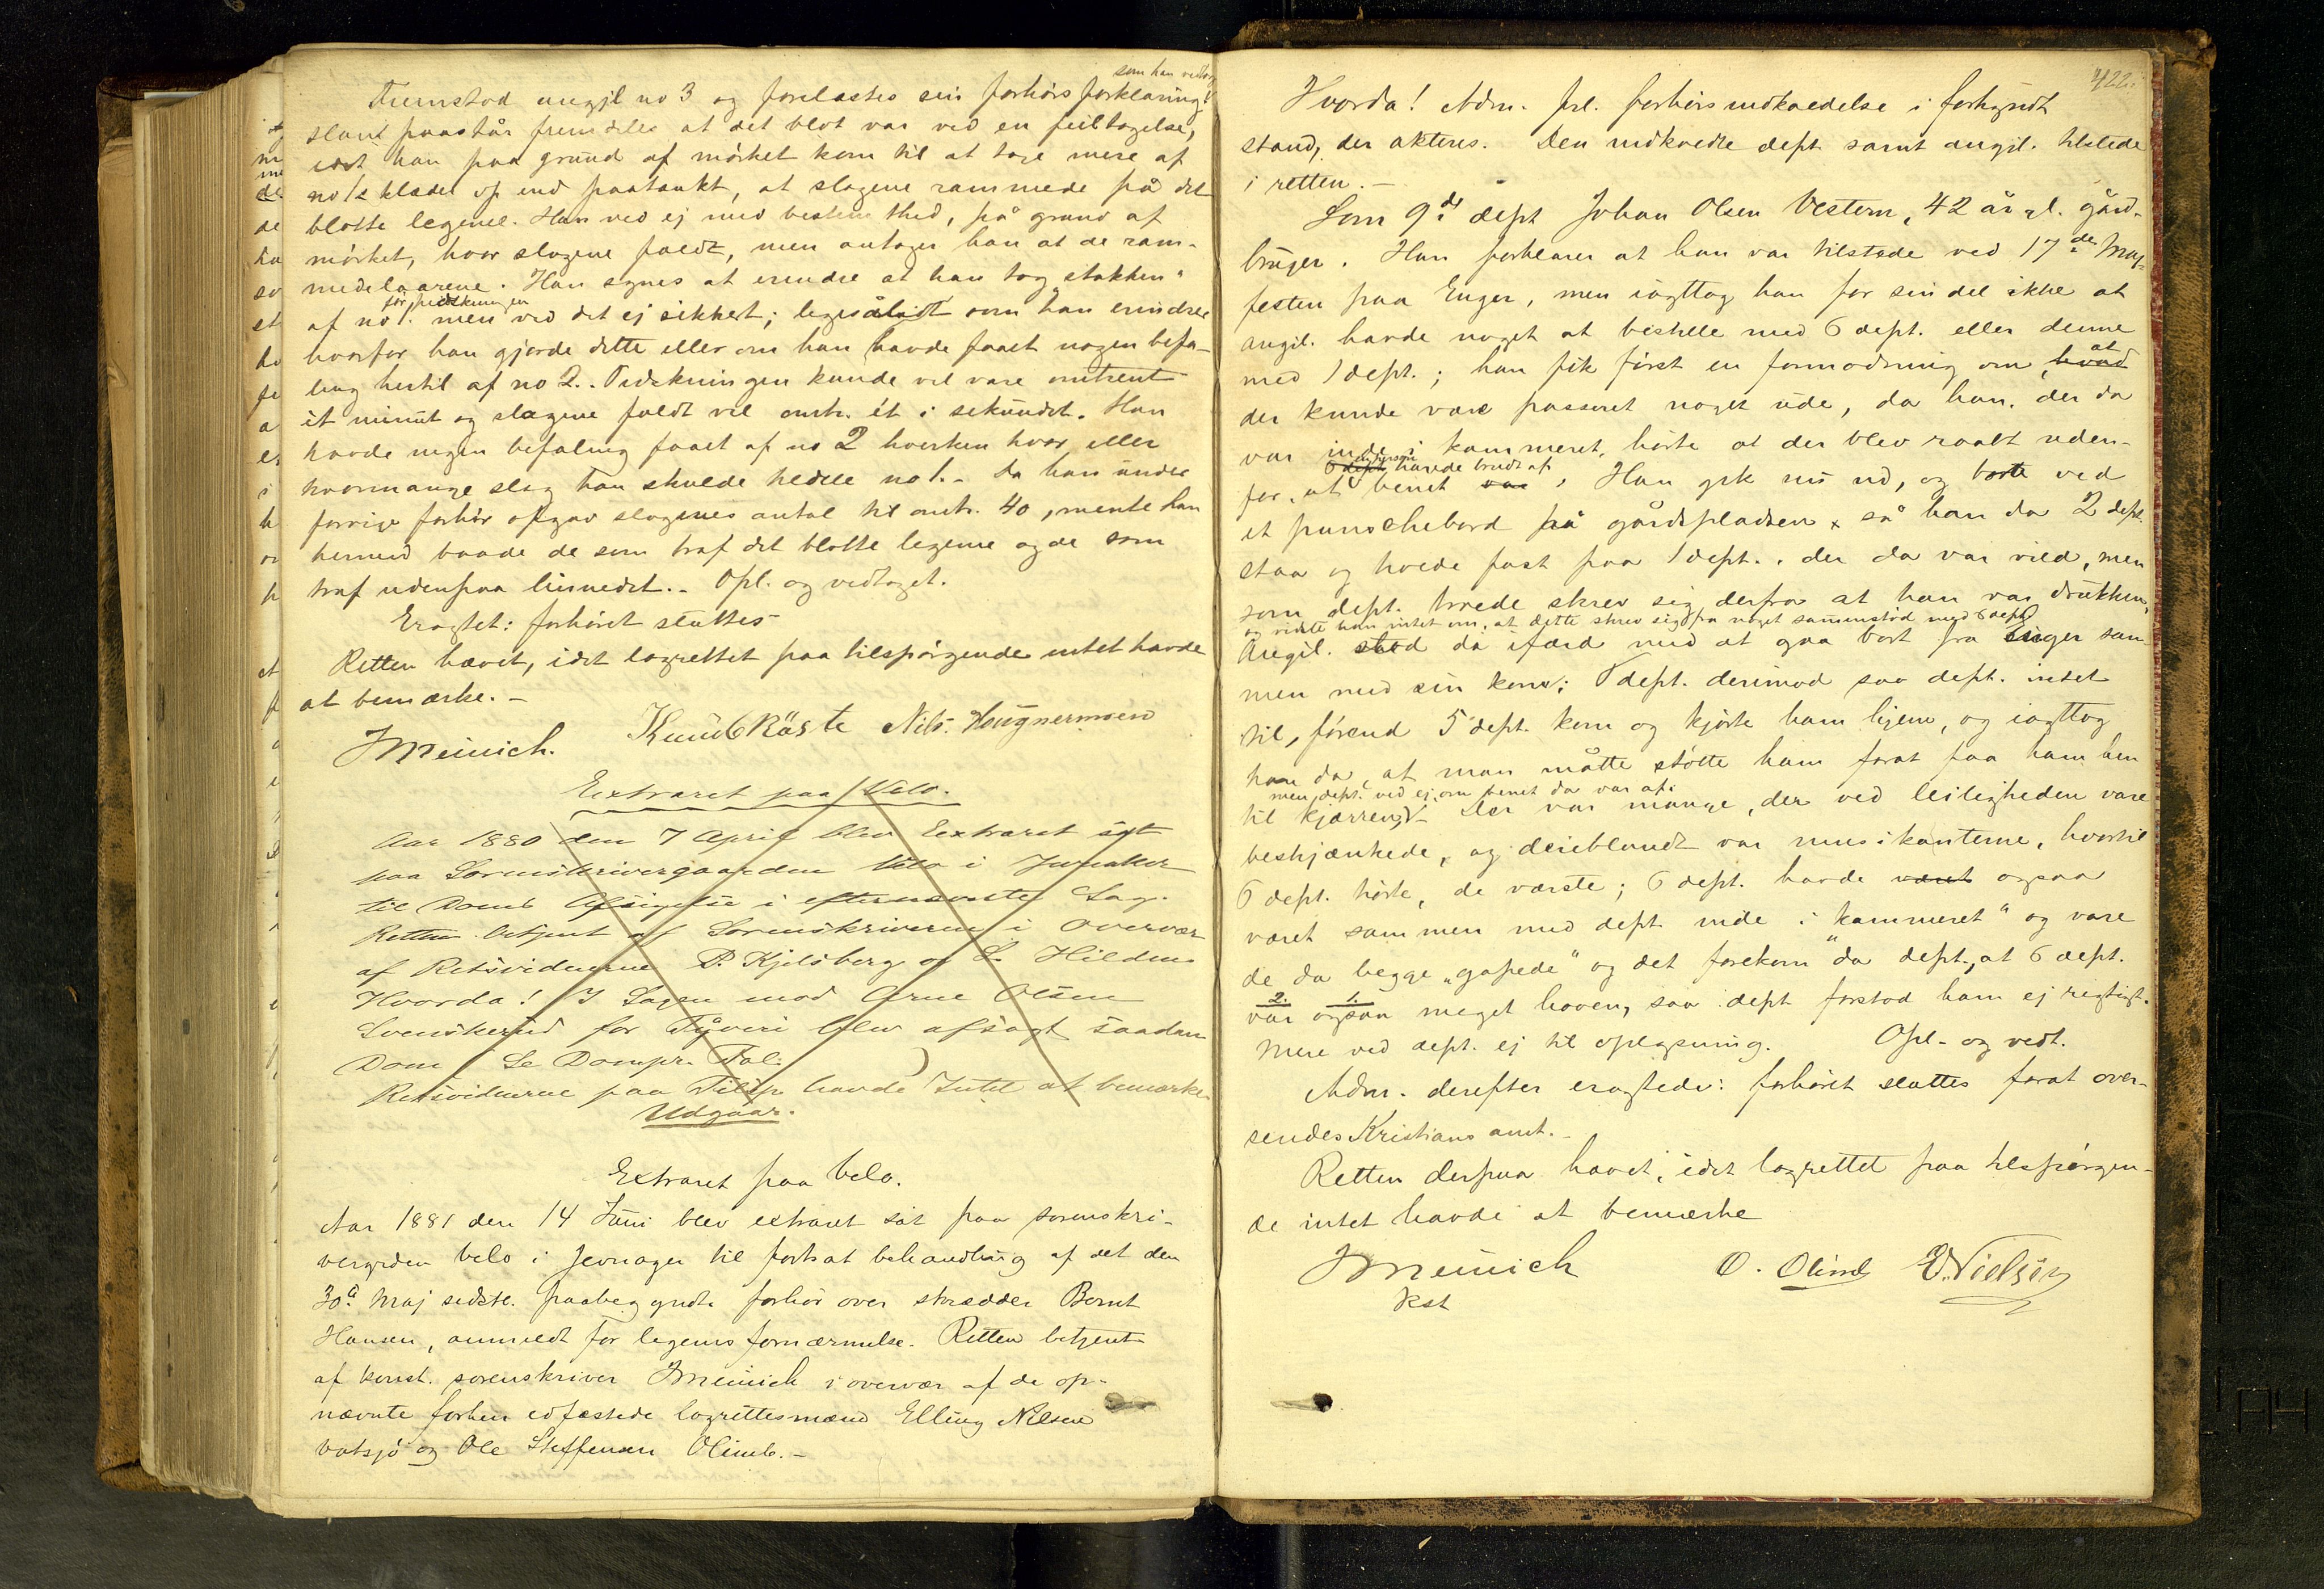 som han vedtog
Fremstod angjl no 3 og forelæstes sin forhørsforklaring!
Han paastår fremdeles at det blot var ved en feiltagelse,
idet han paa grund af mørket kom til at tage mere af
no 1s klæder op end paatænkt, at slagene rammede på det
blotte legeme. Han ved ej med bestemthed, på grund af
mørket, hvor slagene faldt, men antager han at de ram-
mede laarene. Han synes at erindre at han tog stakken
af no 1. før pidskningen men ved det ej sikkert; ligesålidt som han erindrer
hvorfor han gjorde dette eller om han havde faaet nogen befa-
ling hertil af no 2. Pidskningen kunde vel vare omtrent
ét minut og slagene faldt vel omtr. ét i sekundet. Han
havde ingen befaling faaet af no 2 hverken hvor eller
hvormange slag han skulde tildele no 1. - Da han under
forrige forhør opgav slagenes antal til omtr. 40, mente han
hermed baade de som traf det blotte legeme og de som
traf udenpaa linnedet. - Opl. og vedtaget.
Eragtet: forhøret sluttes
Retten hævet, idet lagrettet paa tilspørgende intet havde
at bemærke. -
JMeinich. Knud Råste Nils Haugnermoen
Extraret paa Velo.
Aar 1880 den 7 April blev Extraret sat
paa Sorenskrivergaarden Velo i Jevnaker
til Doms Afsigelse i efternævnte Sag.
Retten betjent af Sorenskriveren i Overvær
af Retsvidnerne P. Kjelsberg og L. Hilden
Hvorda! I Sagen mod Arne Olsen
Svenskerud for Tyveri blev afsagt saadan
Dom / Se Dompr. Fol: )
Retsvidnerne paa Tilsp. havde Intet at bemærke
Udgaar.
Extraret paa Velo.
Aar 1881 den 14 Juni blev extraret sat paa sorenskri-
vergrden Velo i Jevnager til fortsat behandling af det den
30te Maj sidstl. paabegyndte forhør over skrædder Bernt
Hansen, anmeldt for legemsfornærmelse. Retten betjent
af konst. sorenskriver JMeinich i overvær af de op-
nævnte forhen edfæstede lagrettesmænd Elling Nilsen
Vatsjø og Ole Steffensen Olimb. -
422.
Hvorda! Adm. frl. forhørsindkaldelse i forkyndt
stand, der akteres. Den indkaldte dept samt angjl. tilstede
i retten. -
Som 9de dept Johan Olsen Vestern, 42 år gl. gård-
bruger. Han forklarer at han var tilstede ved 17de Maj-
festen paa Enger, men iagttog han for sin del ikke at
angjl. havde noget at bestille med 6 dept. eller denne
med 1 dept.; han fik først en formodning om, hvad at
der kunde være passeret noget ude, da han, der da
var inde i kammeret, hørte at der blev raabt uden-
for, at 6 dept en person havde brudt af benet var. Han gik nu ud, og borte ved
et punschebord på gårdspladsen så han da 2 dept.
staa og holde fast paa 1 dept., der da var vild, men
som dept. troede skrev sig derfra at han var drukken,
og vidste han intet om, at dette skrev sig fra noget sammenstød med 6 dept
Angjl. stod da ifærd med at gaa bort fra Enger sam-
men med sin kone; 6 dept. derimod saa dept. intet
til, førend 5 dept. kom og kjørte ham hjem, og iagttog
han da, at man måtte støtte ham forat faa ham hen
til kjærren, men dept. ved ej om benet da var af. - Der var mange, der ved leiligheden vare
beskjænkede, og deriblandt var musikanterne, hvortil
6 dept. hørte, de værste; 6 dept. havde været ogsaa
været sammen med dept inde i kammeret" og vare
de da begge „gapede" og det forekom da dept., at 6 dept.
2. var 1. ogsaa meget hoven, saa dept forstod ham ej rigtigt.
Mere ved dept. ej til oplysning. Opl. og vedt.
Adm. derefter eragtede: forhøret sluttes forat over-
sendes Kristians amt. -
Retten derpaa hævet, idet lagrettet paa tilspørgen-
de intet havde at bemærke
JMeinich O. Olimb E. Nielsen
kst